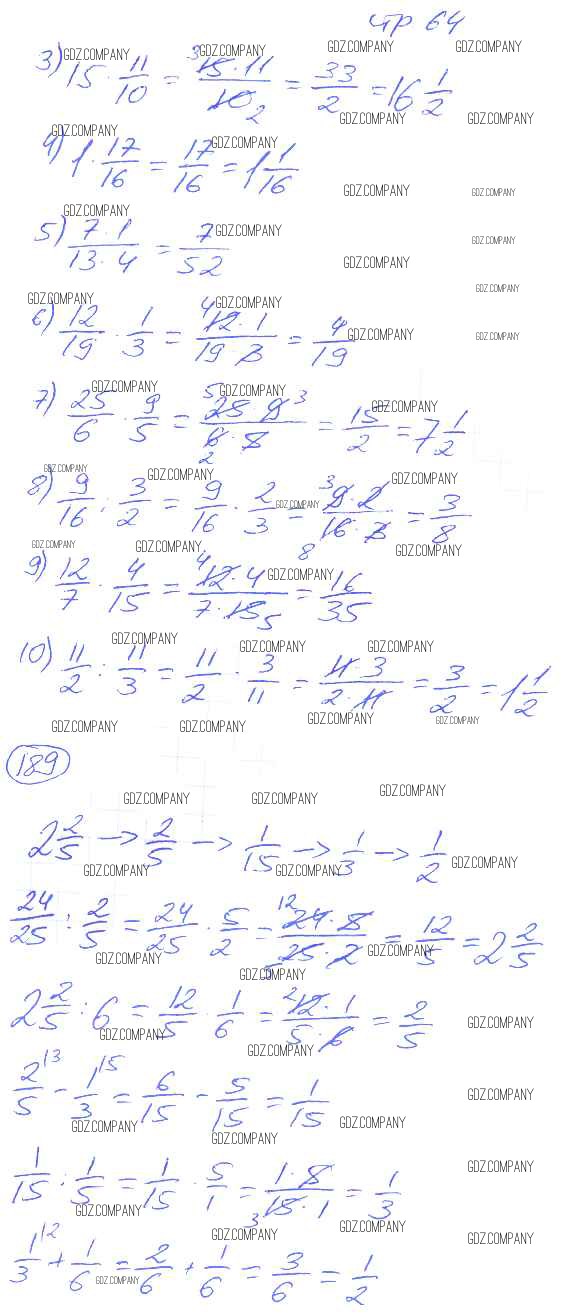 стр 64
3) 15 · 11/10 = 15 · 11/10 = 33/2 = 16 1/2
4) 1 · 17/16 = 17/16 = 1 1/16
5) 7 · 1/13 · 4 = 7/52
6) 12/19 · 1/3 = 12 · 1/19 · 3 = 4/19
7) 25/6 · 9/5 = 25 · 9/6 · 5 = 15/2 = 7 1/2
8) 9/16 : 3/2 = 9/16 · 2/3 = 9 · 2/16 · 3 = 3/8
9) 12/7 · 4/15 = 12 · 4/7 · 15 = 16/35
10) 11/2 : 11/3 = 11/2 · 3/11 = 11 · 3/2 · 11 = 3/2 = 1 1/2
189
2 2/5 → 2/5 → 1/15 → 1/3 → 1/2
24/25 : 2/5 = 24/25 · 5/2 = 24 · 5/25 · 2 = 12/5 = 2 2/5
2 2/5 : 6 = 12/5 · 1/6 = 12 · 1/5 · 6 = 2/5
2/5 - 1/3 = 6/15 - 5/15 = 1/15
1/15 : 1/5 = 1/15 · 5/1 = 1 · 5/15 · 1 = 1/3
1/3 + 1/6 = 2/6 + 1/6 = 3/6 = 1/2
GDZ.COMPANY